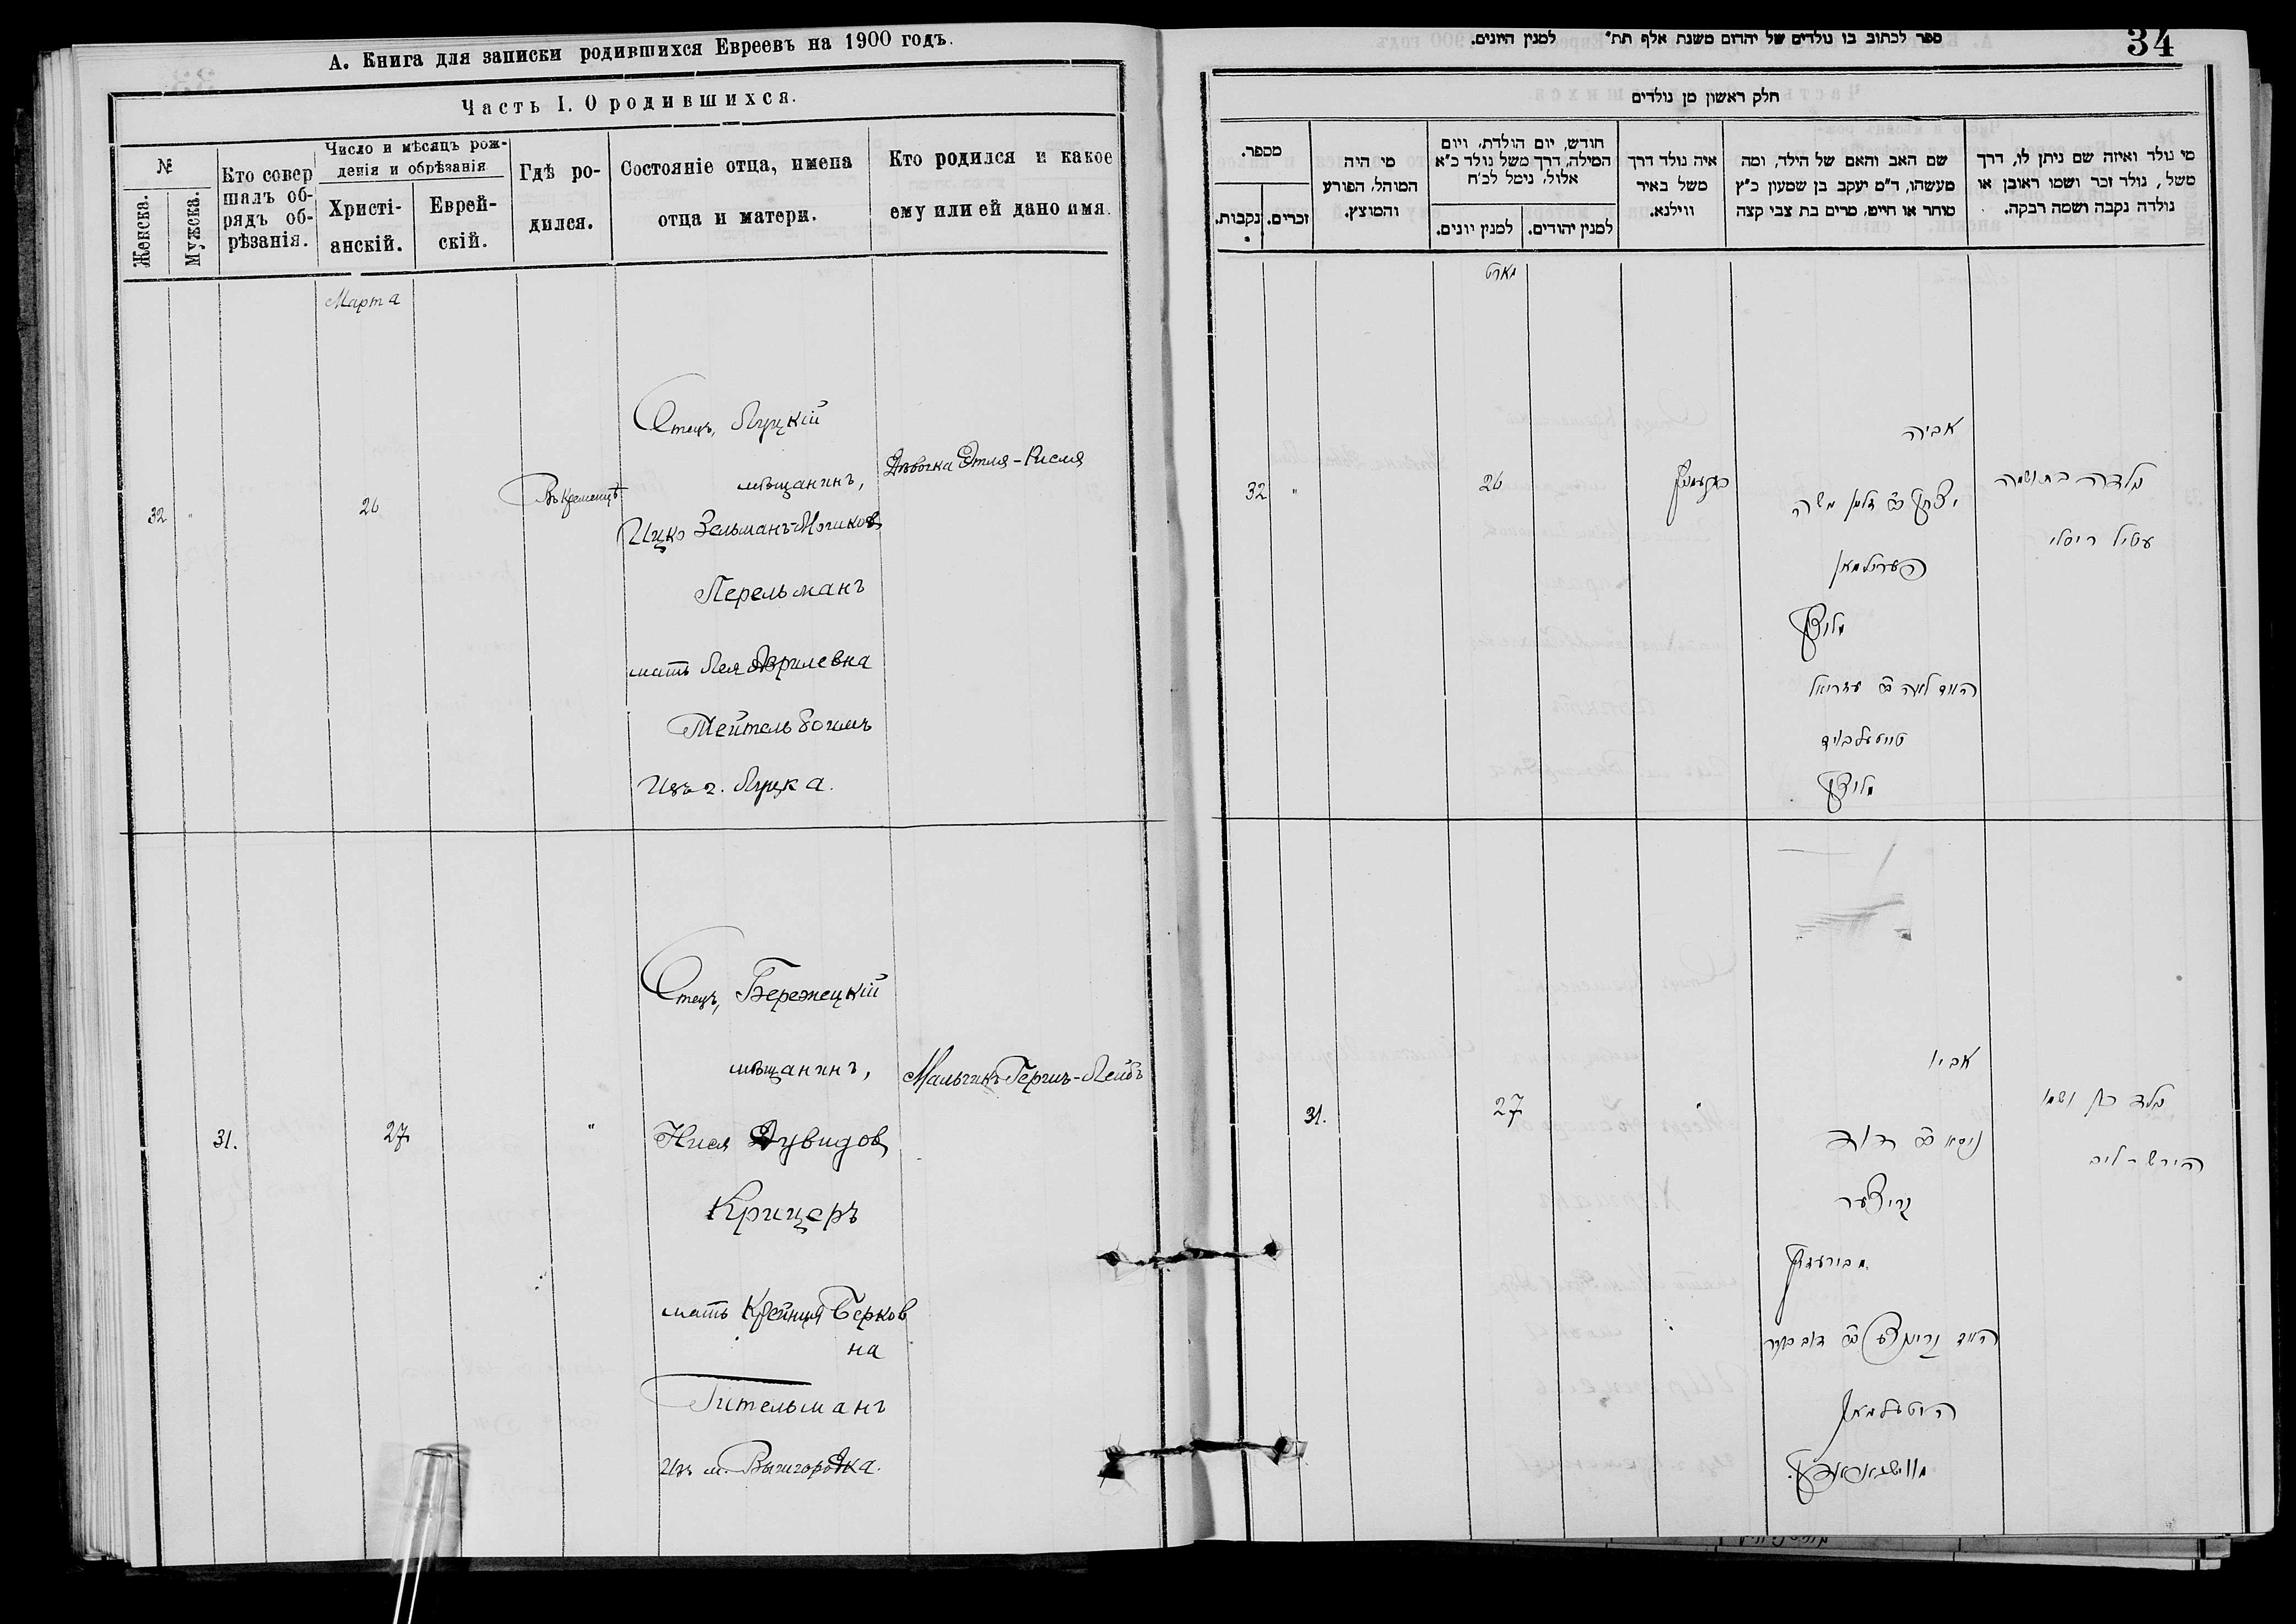 А. Книга для записки родившихся Евреевъ на 1900 годъ.
Часть I. О родившихся.
№
Женска.
Мужска.
Кто совер
шалъ об-
рядъ об-
рѣзанія.
Число и мѣсяцъ рож-
денія и обрѣзанія
Христі-
анскій.
Еврей-
скій.
Гдѣ ро-
дился.
Состояніе отца, имена
отца и матери.
Кто родился и какое
ему или ей дано имя.
Марта
32
"
26
Въ Кременцѣ
Отецъ, Луцкій
мѣщанинъ,
Ицко Зельманъ-Мошковъ
Перельманъ
мать Лея Азрилевна
Тейтельбоимъ
Изъ г. Луцка.
Дѣвочка Этля-Рисля
31.
27
"
Отецъ, Бережецкій
мѣщанинъ,
Нися Дувидов
Крицеръ
мать Крейнця Берков
на
Гительманъ
Изъ м. Вышгородка.
Мальчикъ Гершъ-Лейбъ
34
ספר לכתוב בו נולדים של יהדום משנת אלף תת״ למנין היונים.
חלק ראשון מן נולדים
מספר.
נקבות.
זכרים.
מי היה
המוהל, הפורע
והמוצץ.
חודש, יום הולדת, ויום
המילה, דרך משל נולד כ״א
אלול, נימל לכ״ח
למנין יונים.
למנין יהודים.
איה נולד דרך
משל באיר
ווילנא.
שם האב והאם של הילד, ומה
מעשהו, ד״מ יעקב בן שמעון כ״ץ
סוחר או חייט, מרים בת צבי קצה
מי נולד ואיזה שם ניתן לו, דרך
משל, נולד זכר ושמו ראובן או
נולדה נקבה ושמה רבקה.
מארט
32
"
26
אביה
יצחק ב״ר זלמן משה
פערילמאן
מלוצק
לאה ב״ר עזריאל
טייטעלבוים
מלוצק
נולדה בת ושמה
עטיל ריסלי
31.
27
"
אביו
ניסא ב״ר דוד
קריצער
ב״ר דוב בער
היטעלמאן
נולד בן ושמו
הירש-ליב